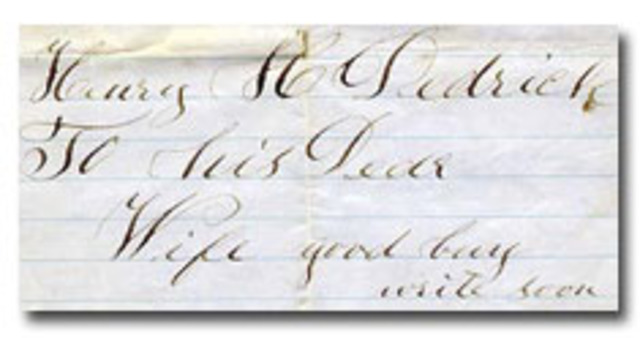 Henry H Dedrick
To his Dear
Wife good buy
write soon